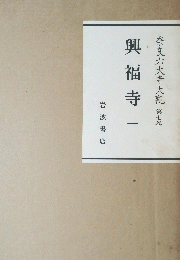 奈良六大寺大観 第七巻
興福寺 一
岩波書店